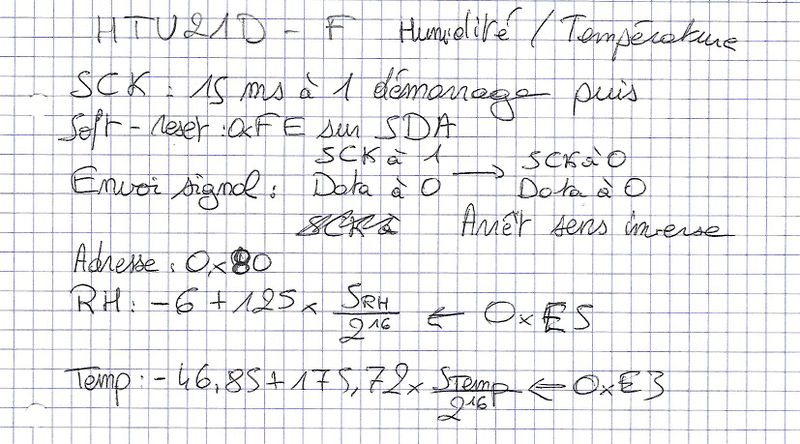 HTU21D - F Humidité / Température
SCK : 15 ms à 1 démarrage puis
Soft-reset : 0xFE sur SDA
SCK à 1 → SCK à 0
Envoi signal : Data à 0 Data à 0
SCK à Arrêt sens inverse
Adresse : 0x80
RH : -6 + 125 x SRH / 2^16 ← 0xE5
Temp : -46,85 + 175,72 x STemp / 2^16 ← 0xE3